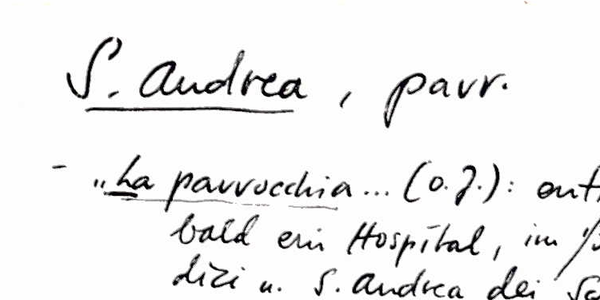 S. Andrea, parr.
- „La parrocchia... (o.J.):
bald ein Hospital, im
dizi u. S. Andrea dei